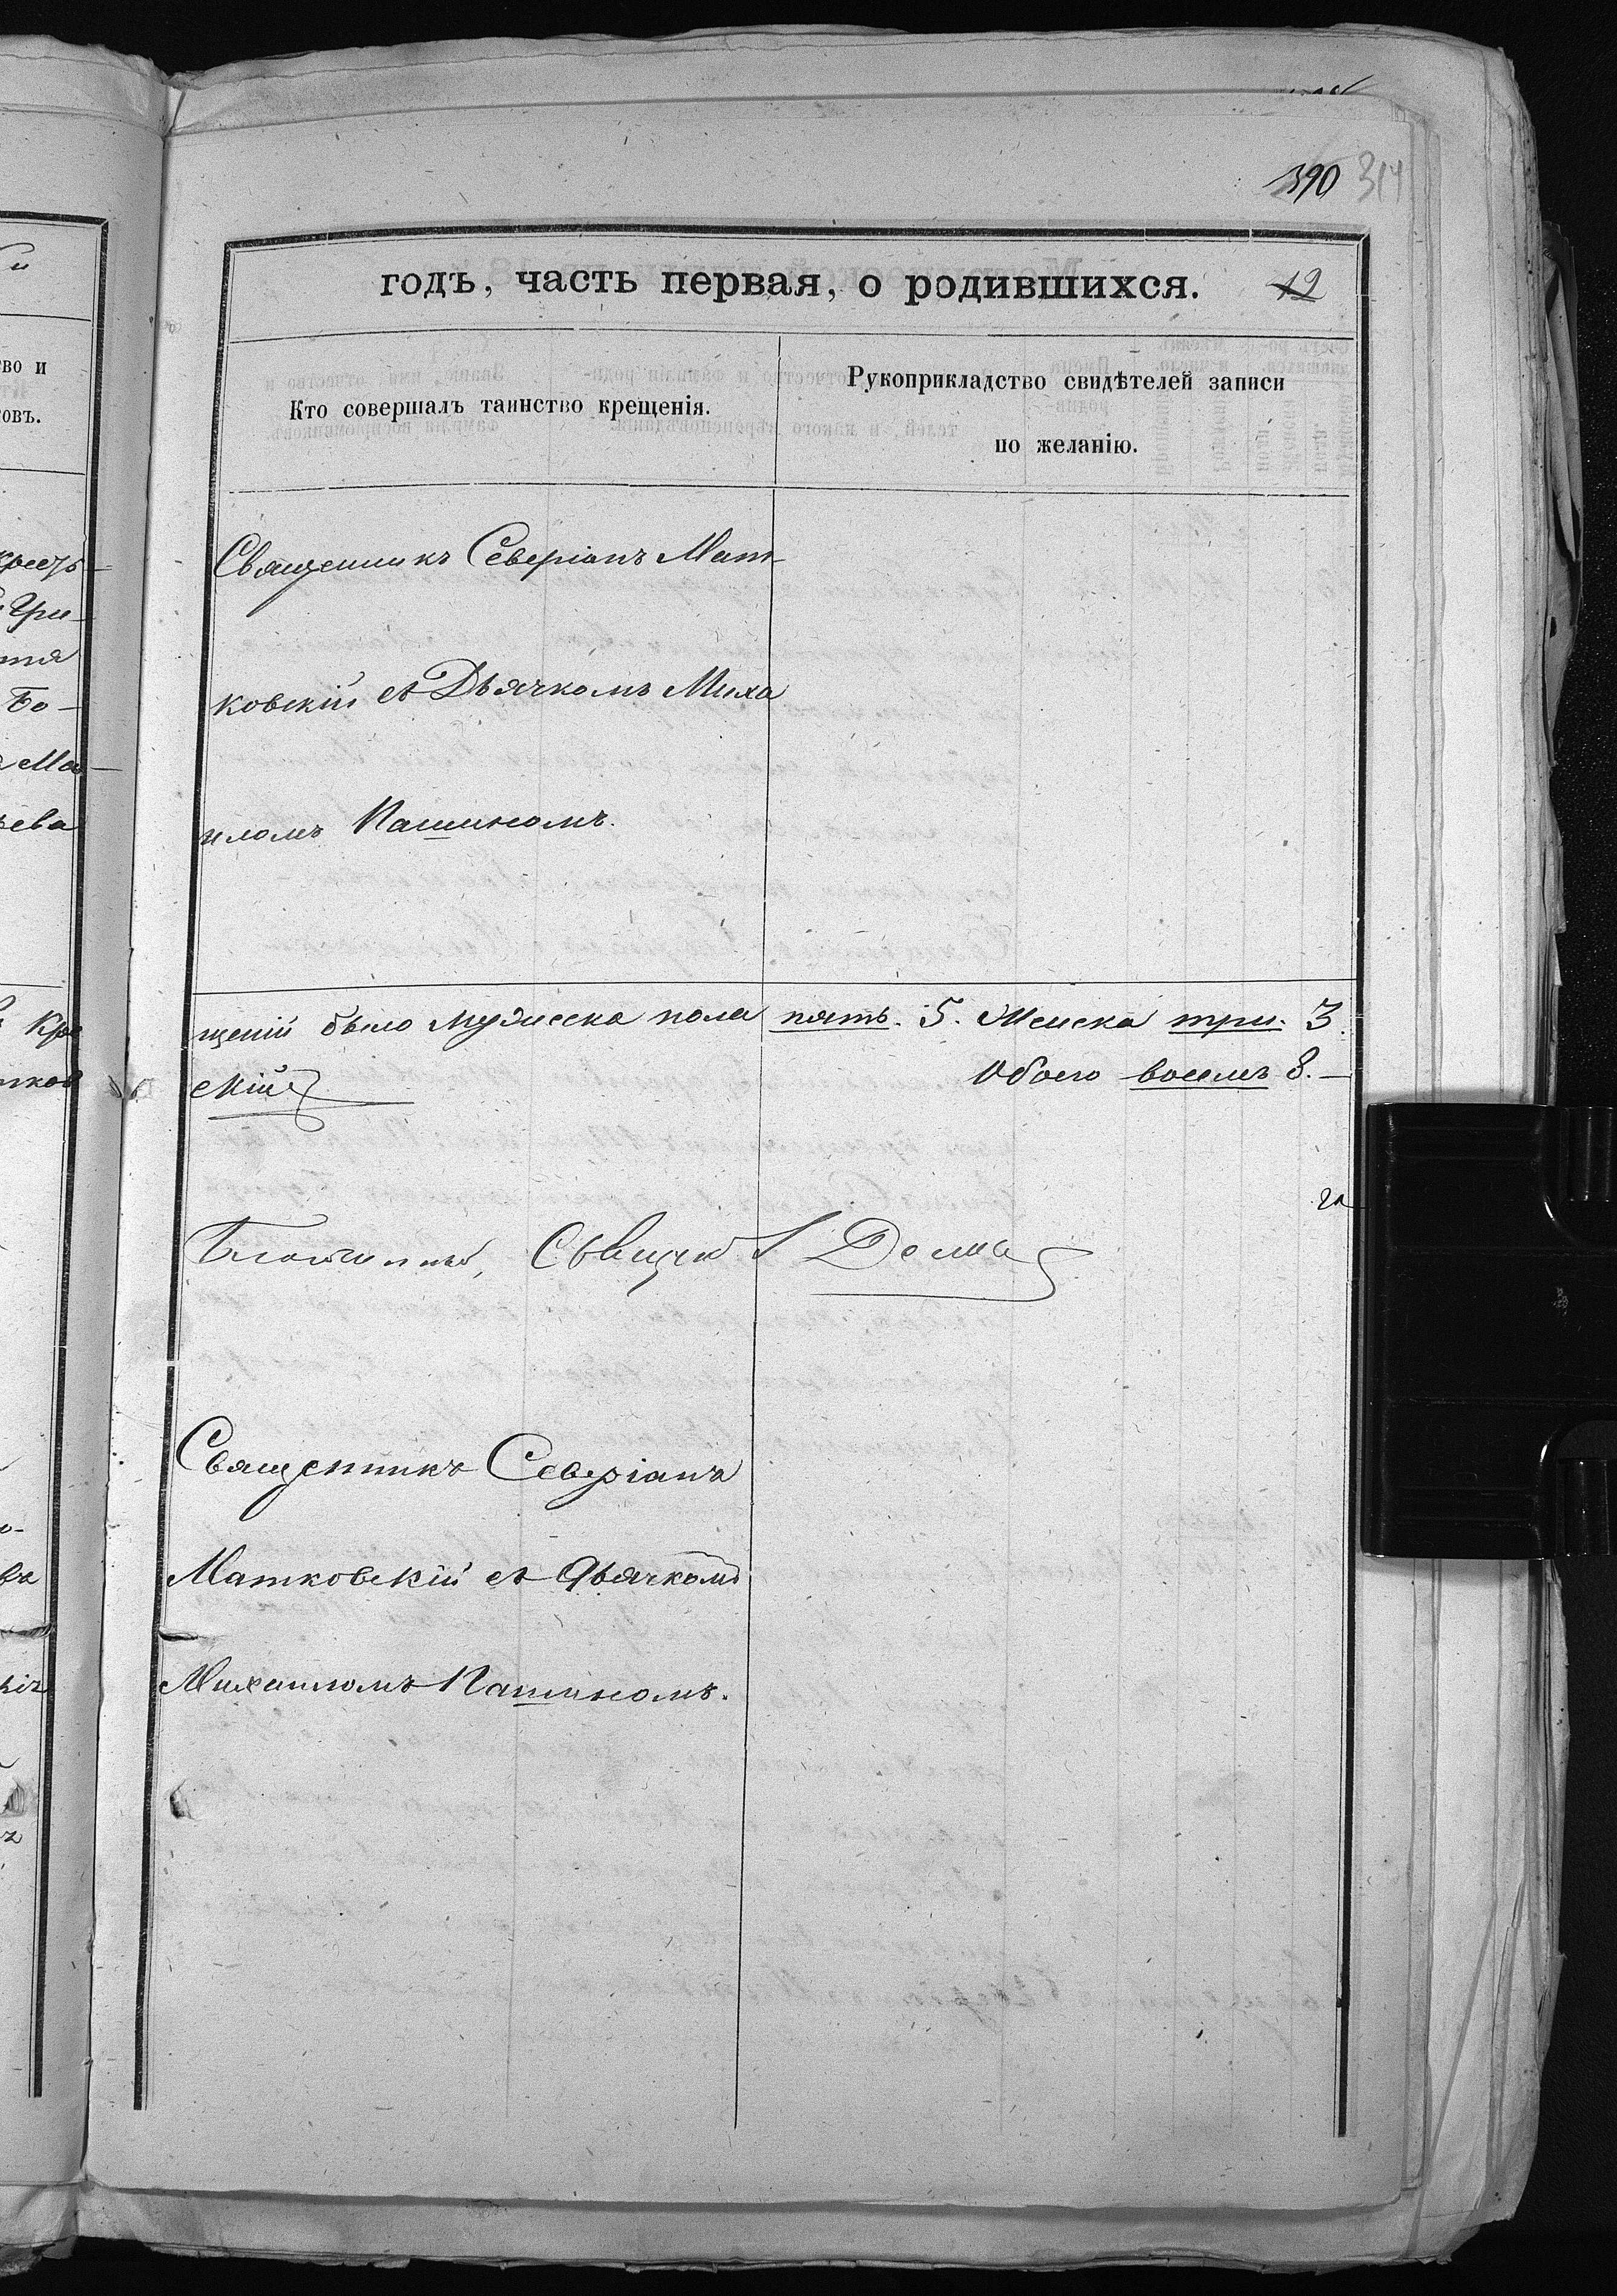 390 314
годъ, часть первая, о родившихся. 12
Кто совершалъ таинство крещенія.
Рукоприкладство свидѣтелей записи
по желанію.
Священникъ Северіанъ Мат-
ковскій съ Дьячкомъ Миха
иломъ Пашиномъ.
щеній было мужеска пола пять. 5. Женска три. 3.
скій Обоего восемь 8.—
Священникъ Северіанъ
Матковскій съ Дьячкомъ
Михаиломъ Пашиномъ.
во и
овъ.
Гри-
тія
Бо-
Ма-
ьева
Кре
тков